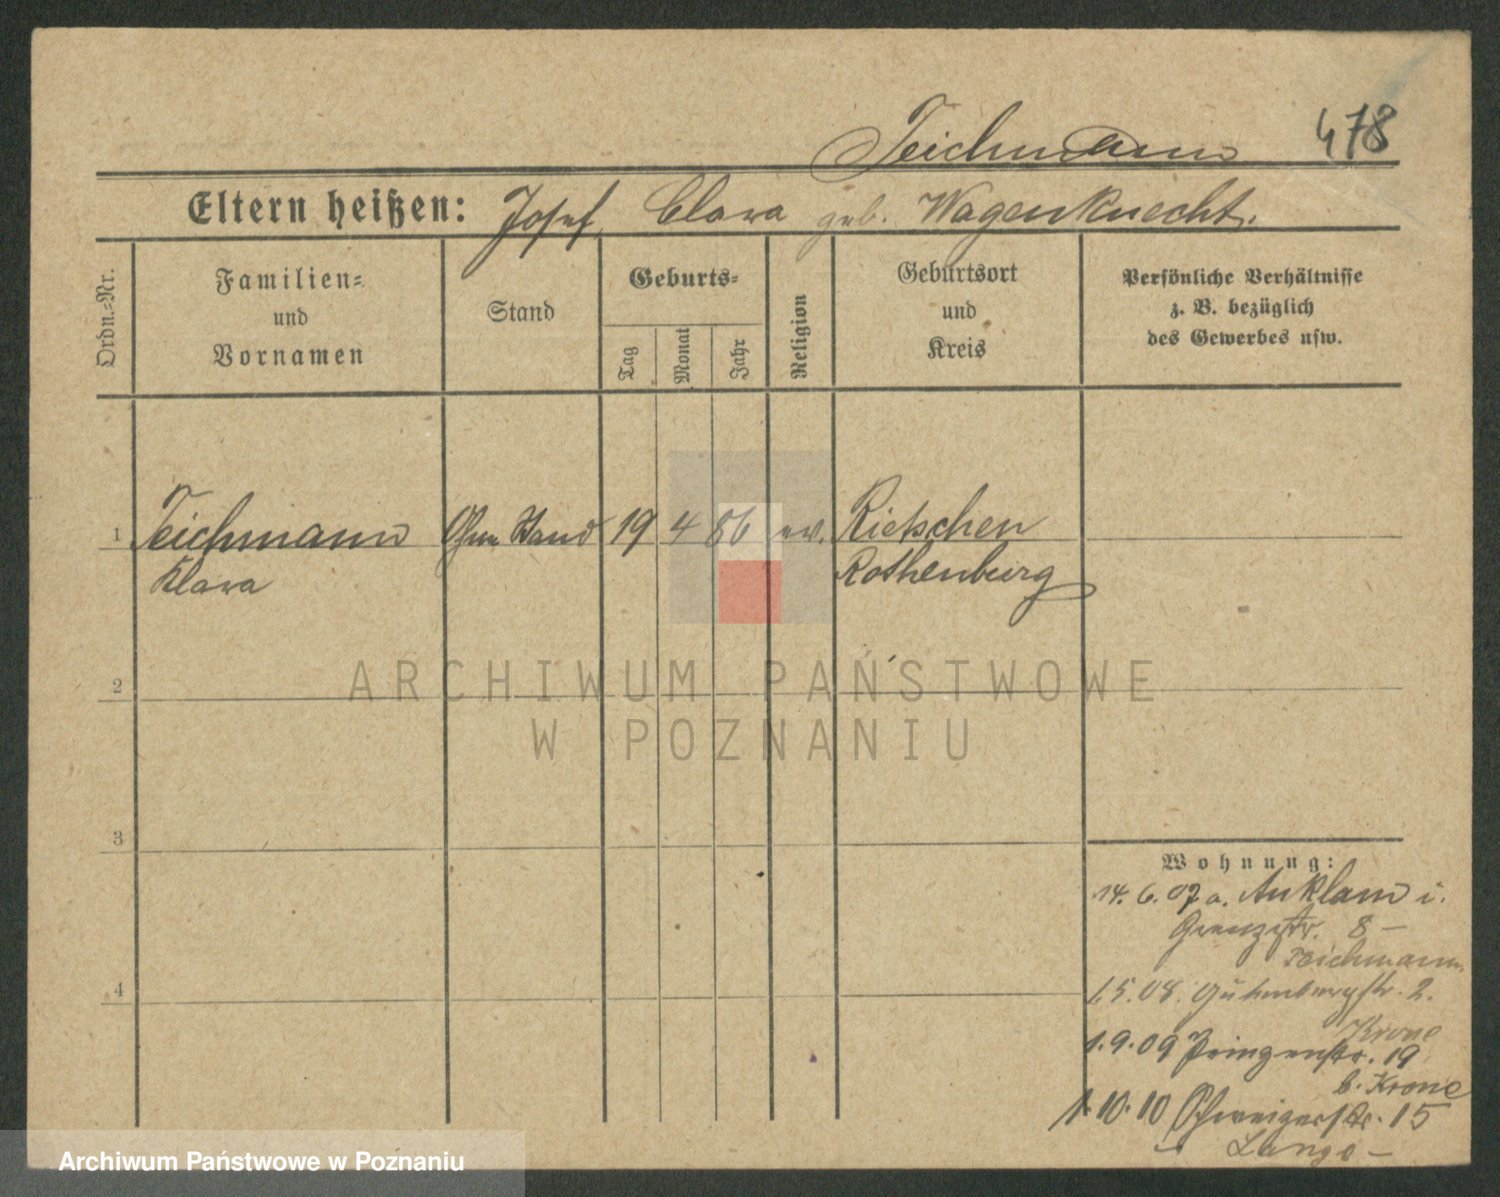 Teichmann 478
Eltern heißen: Josef, Clara geb. Wagenknecht.
Ordn.=Nr.
Familien=
und
Vornamen
Stand
Geburts=
Tag
Monat
Jahr
Religion
Geburtsort
und
Kreis
Persönliche Verhältnisse
z. B. bezüglich
des Gewerbes usw.
1 Teichmann Ohne Stand 19 4 86 ev. Rietschen
Klara Rothenburg
2
ARCHIWUM PAŃSTWOWE
W POZNANIU
3
4
Wohnung:
14. 6. 07 a. Anklam i.
Grenzstr. 8 –
Teichmann.
1.5.08. Gutenbergstr. 2.
Krone
1.9.09 Prinzenstr. 19
b. Krone
1.10.10 15
Lange –
Archiwum Państwowe w Poznaniu